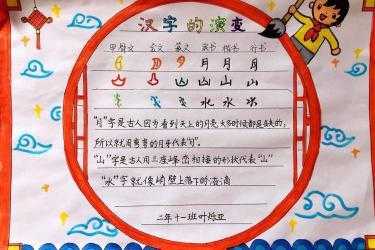 汉字的演变
甲骨文 金文 篆文 隶书 楷书 行书
月 月 月
山 山 山
水 水 水
"月"字是古人因为看到天上的月亮,大多时候都是缺的,
所以就用弯弯的月牙代表"月"。
"山"字是古人用三座峰峦相接的形状代表"山"
"水"字就像峭壁上落下的滴
二年十一班叶烁亚